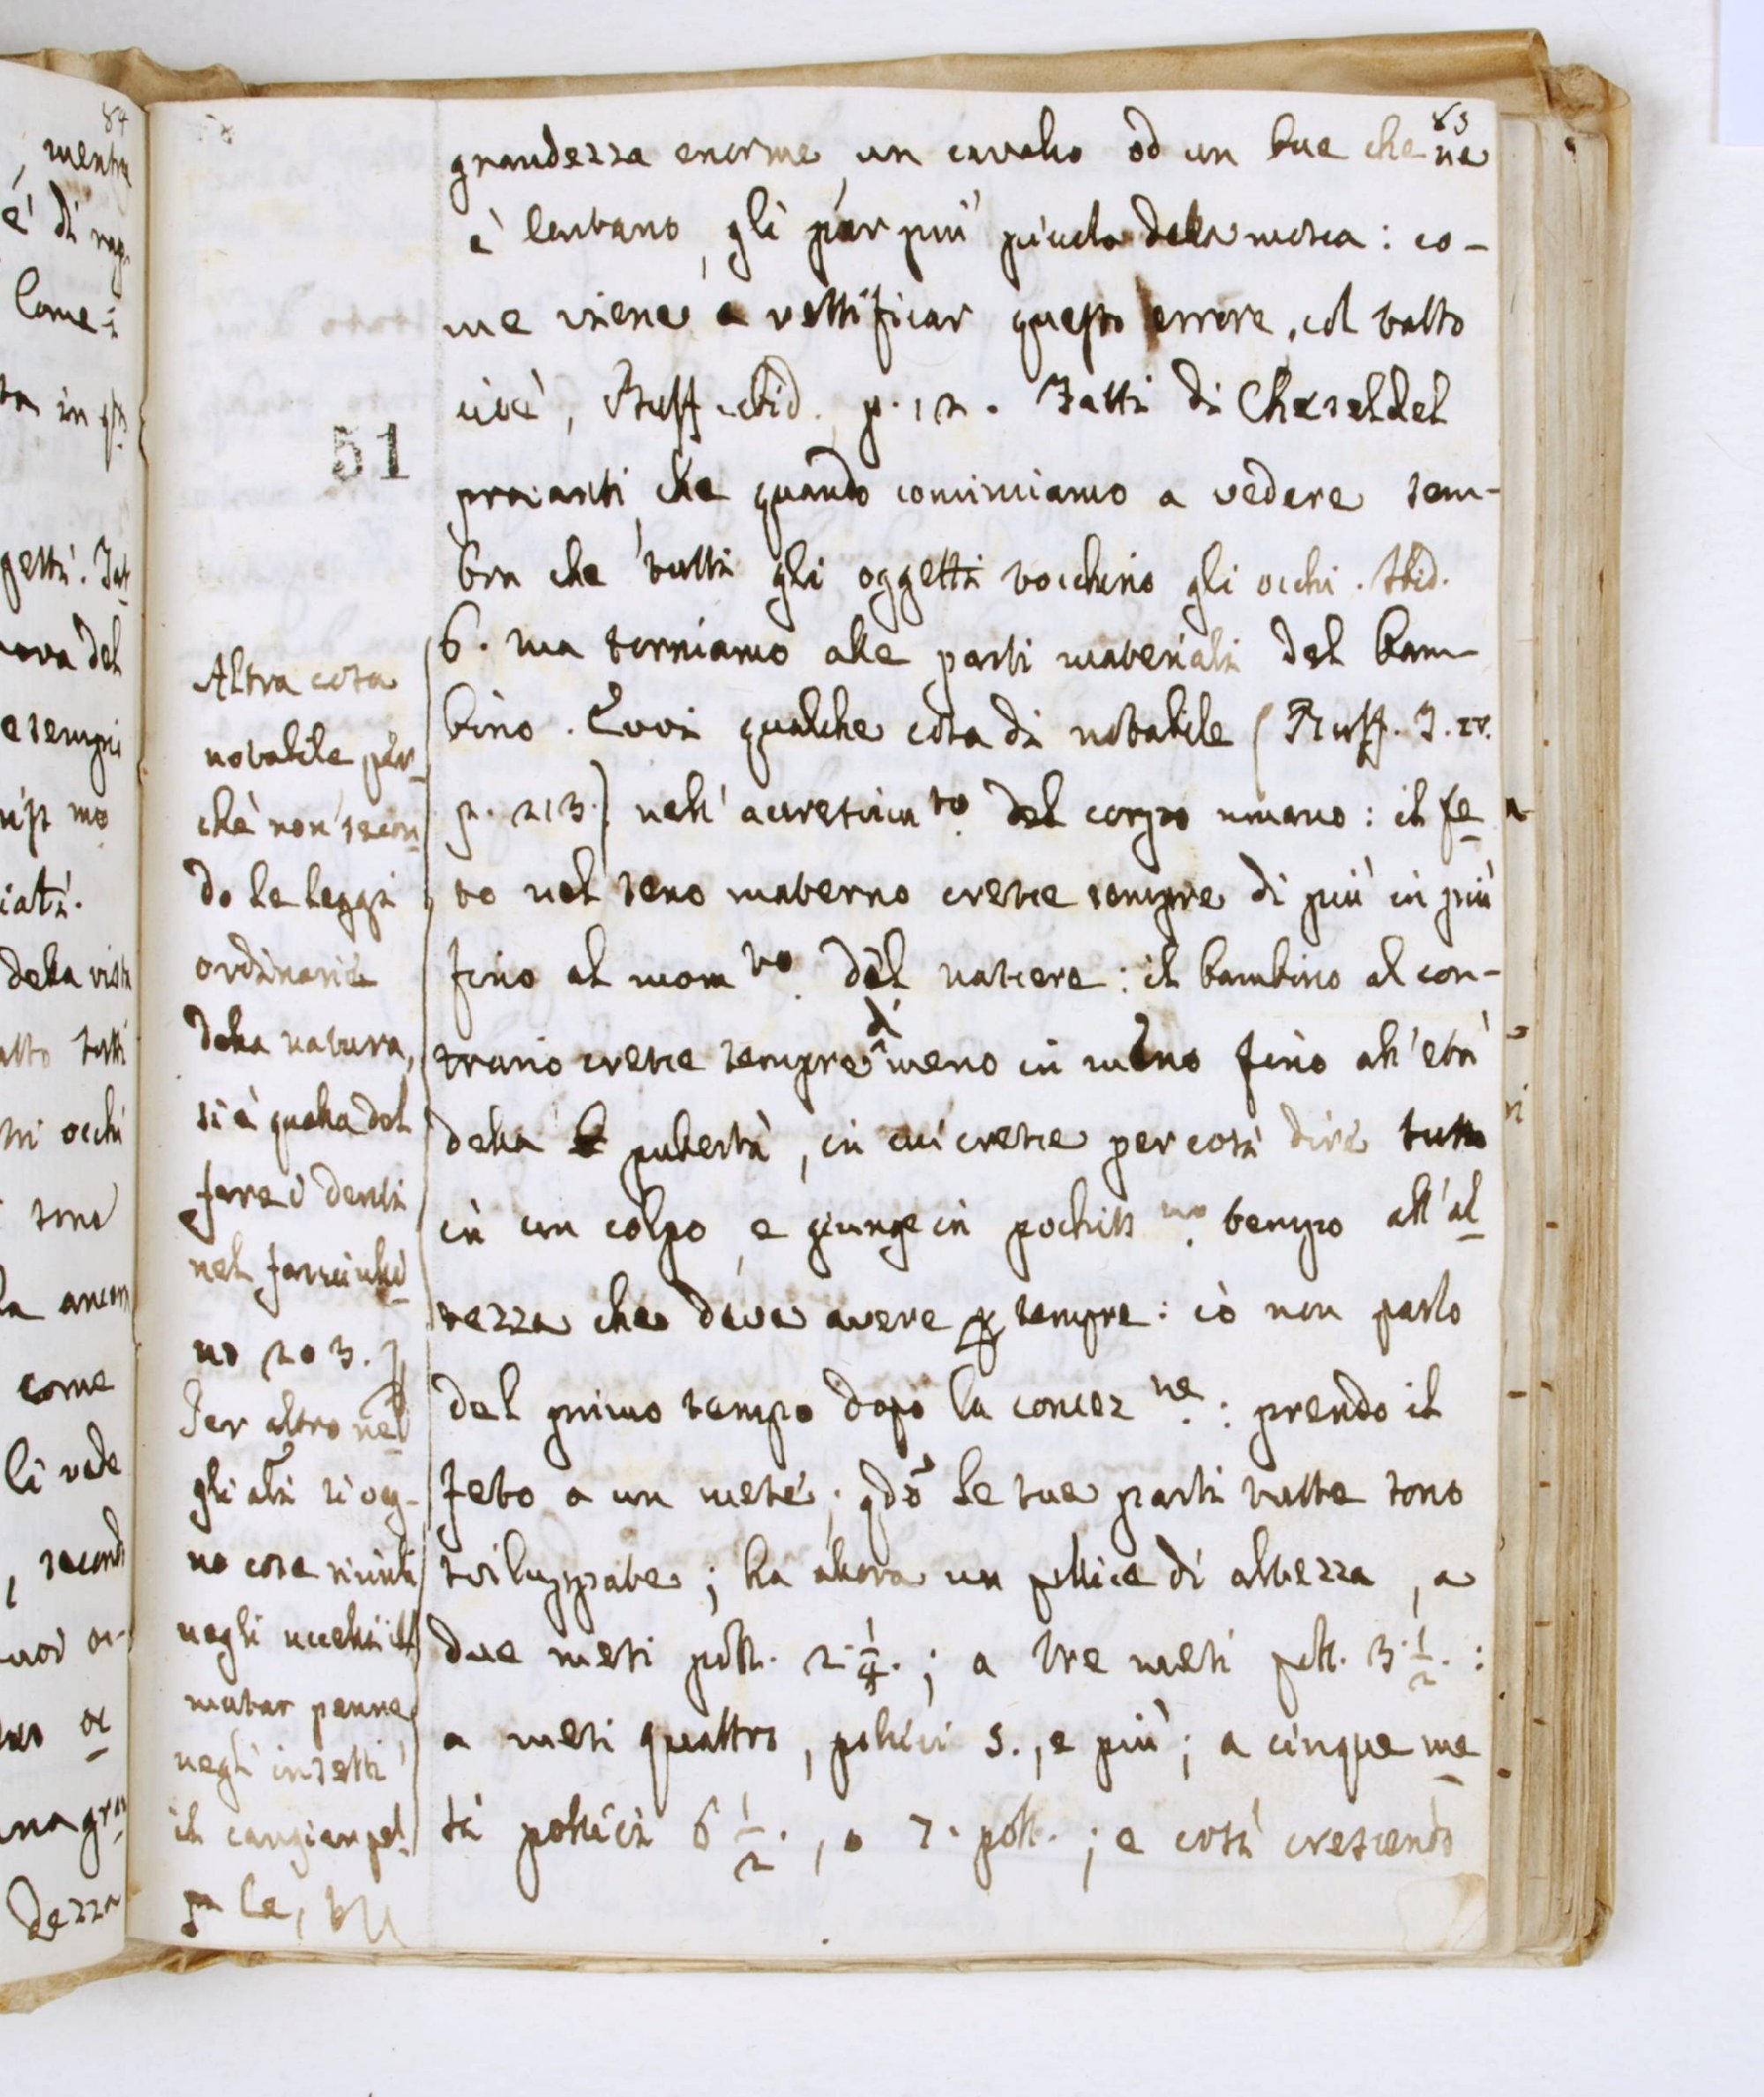 83
grandezza enorme, un cavallo od un bue che ne
è lontano, gli par più piccolo della mosca: co-
me viene a rettificar questo errore, col tatto
cioè, Buff. ibid. p. 12. Fatti di Cheseldel
provanti, che quando cominciamo a vedere sem-
bra che tutti gli oggetti tocchino gli occhi. Ibid.
6. ma torniamo alle parti materiali del bam-
bino. Evvi qualche cosa di notabile (Buff. T. IV.
p. 213.) nell' accrescim.to del corpo umano: il fe
to nel seno materno cresce sempre di più in più
fino al mom.to del nascere: il bambino al con-
trario cresce sempre di meno in meno fino all' età
della pubertà, in cui cresce per così dire tutto
in un colpo, e giunge in pochiss.mo tempo all' al
tezza che deve avere p sempre: io non parlo
del primo tempo dopo la concez.ne: prendo il
feto a un mese, qdo le sue parti tutte sono
sviluppate; ha allora un pollice di altezza, a
due mesi poll. 2 1/4.; a tre mesi poll. 3 1/2.:
a mesi quattro, pollici 5., e più; a cinque me
si pollici 6 1/2., o 7. poll.; e così crescendo
51
Altra cosa
notabile per-
chè non secon
do le leggi
ordinarie
della natura,
si è quella del
fare i denti
nel fanciulli
no 203.)
Per altro ne
gli altri si og-
no cose simili
negli uccelli il
mutar penne
negli insetti
il cangiar pel
le,
84
mentre
è di
Come
in
esempi
iati.
della vista
tutti
occhi
sono
ancor
come
li vede
, second
dezza